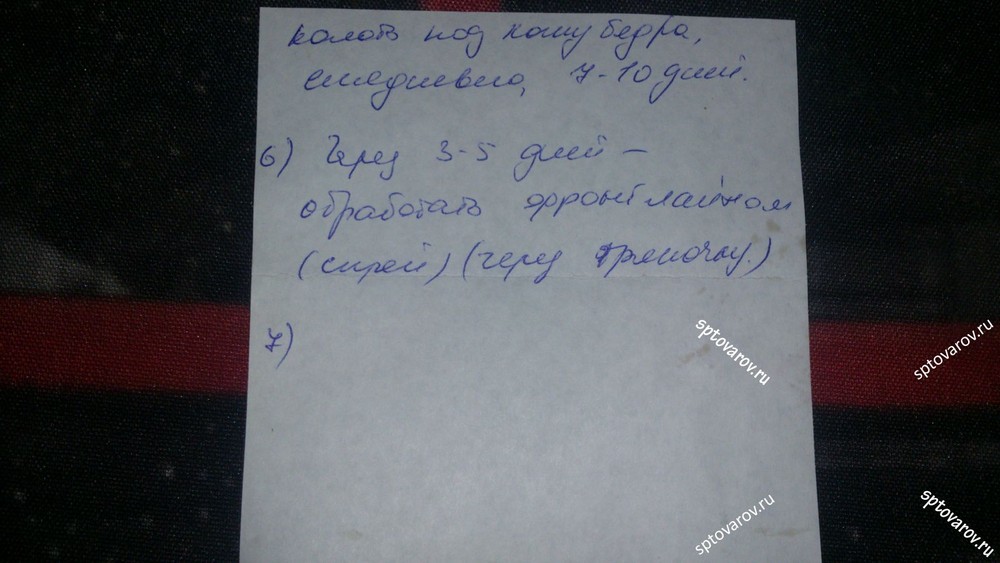 колоть под кожу бедра,
ежедневно, 7-10 дней.
6) Через 3-5 дней –
обработать фронтлайном
(спрей) (через тряпочку.)
7)
sptovarov.ru
sptovarov.ru
sptovarov.ru
sptovarov.ru